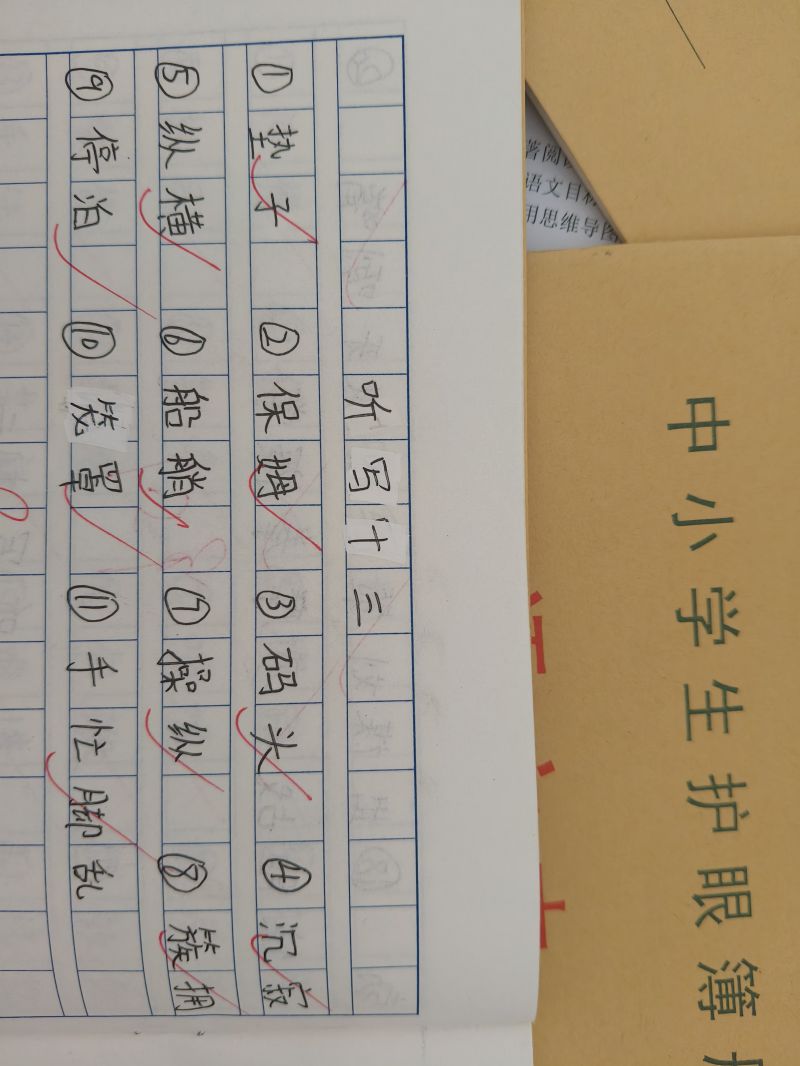 听写十三
①垫子 ②保姆 ③码头 ④沉寂
⑤纵横 ⑥船艄 ⑦操纵 ⑧簇拥
⑨停泊 ⑩笼罩 ⑪手忙脚乱
中小学生护眼簿
语文目标
用思维导图